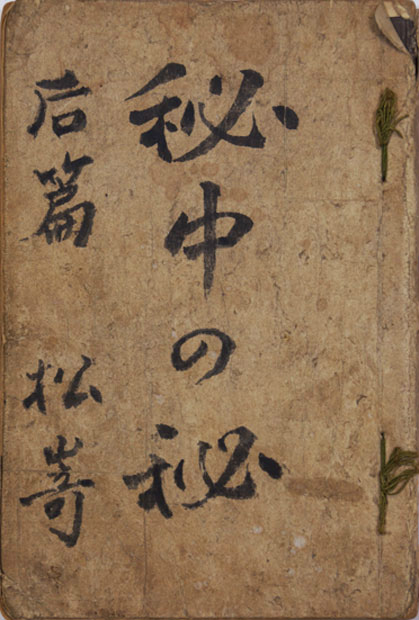 秘中の秘
后篇 松嵜